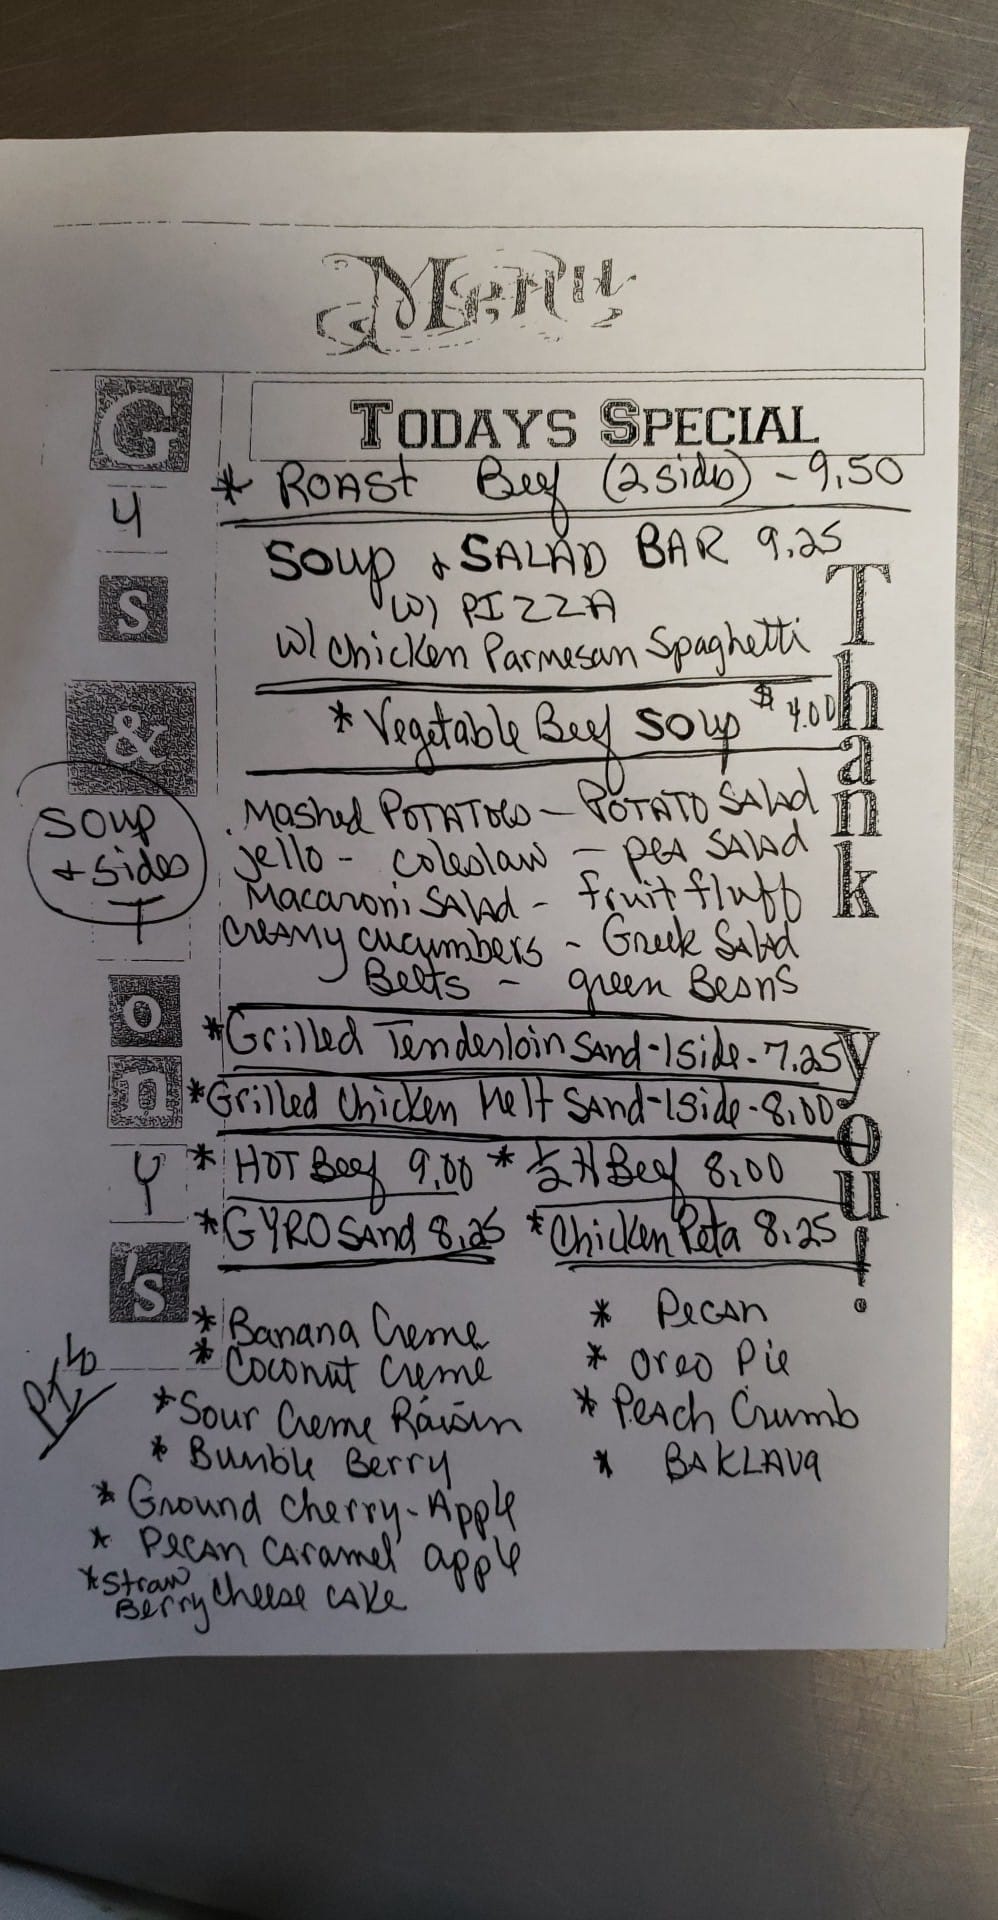 Menu
TODAYS SPECIAL
* ROAST Beef (2 sides) - 9.50
SOUP & SALAD BAR 9.25
w/ PIZZA
w/ Chicken Parmesan Spaghetti
* Vegetable Beef SOUP $4.00
SOUP
& Sides
Mashed POTATOES - POTATO SALAD
jello - coleslaw - PEA SALAD
Macaroni SALAD - fruit fluff
CREAMY cucumbers - Greek Salad
Beets - green BeANS
* Grilled Tenderloin SAND - 1 side - 7.25
* Grilled Chicken Melt SAND - 1 side - 8.00
* HOT Beef 9.00 * 1/2 H Beef 8.00
* GYRO SAND 8.25 * Chicken Peta 8.25
PIES
* Banana Creme
* Coconut Creme
* Sour Creme Raisin
* Bumble Berry
* Ground Cherry - Apple
* PECAN CARAMEL apple
* Straw Berry Cheese CAKE
* PECAN
* Oreo Pie
* PEACH Crumb
* BAKLAVA
Gus & Tony's
Thank you!